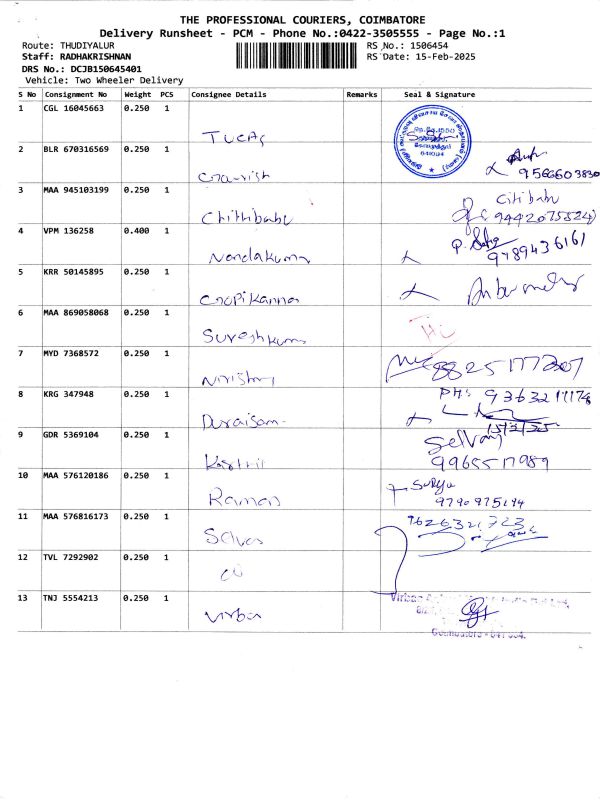 THE PROFESSIONAL COURIERS, COIMBATORE
Delivery Runsheet - PCM - Phone No.:0422-3505555 - Page No.:1
Route: THUDIYALUR RS No.: 1506454
Staff: RADHAKRISHNAN RS Date: 15-Feb-2025
DRS No.: DCJB150645401
Vehicle: Two Wheeler Delivery
S No Consignment No Weight PCS Consignee Details Remarks Seal & Signature
1 CGL 16045663 0.250 1 TUCAS
2 BLR 670316569 0.250 1
9566603830
3 MAA 945103199 0.250 1 Chithibabu Citibabu
9442075524
4 VPM 136258 0.400 1 Nandakumar
9789436161
5 KRR 50145895 0.250 1 Gopikannan
6 MAA 869058068 0.250 1 Sureshkumar
7 MYD 7368572 0.250 1
8 KRG 347948 0.250 1 Duraisam PH:
15/2/25
9 GDR 5369104 0.250 1 Selvan
9965517989
10 MAA 576120186 0.250 1 Raman Surya
11 MAA 576816173 0.250 1 Selvan
9626321723
12 TVL 7292902 0.250 1
13 TNJ 5554213 0.250 1 Virban
Coimbatore - 641 034.